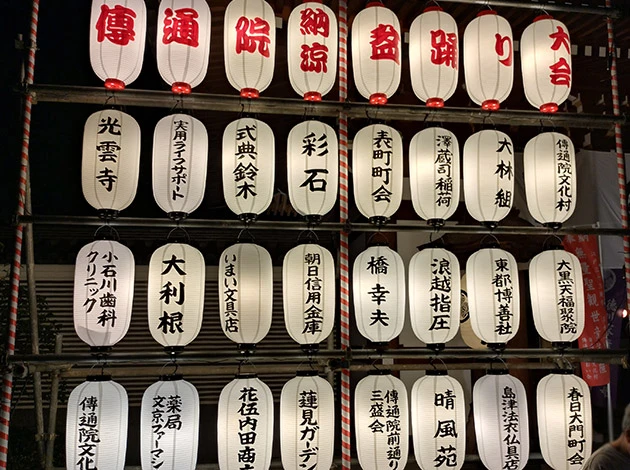 傳通院 納涼 盆踊り大会
光雲寺
実用ライフサポート
式典鈴木
彩石
表町町会
澤蔵司稲荷
大林組
傳通院文化村
小石川歯科
クリニック
大利根
いまい文具店
朝日信用金庫
橋幸夫
浪越指圧
東都博善社
大黒天福聚院
傳通院文化
薬局
文京ファーマシ
花伍内田商
蓮見ガーデン
傳通院前通り
三盛会
晴風苑
島津法衣仏具
春日大門町会